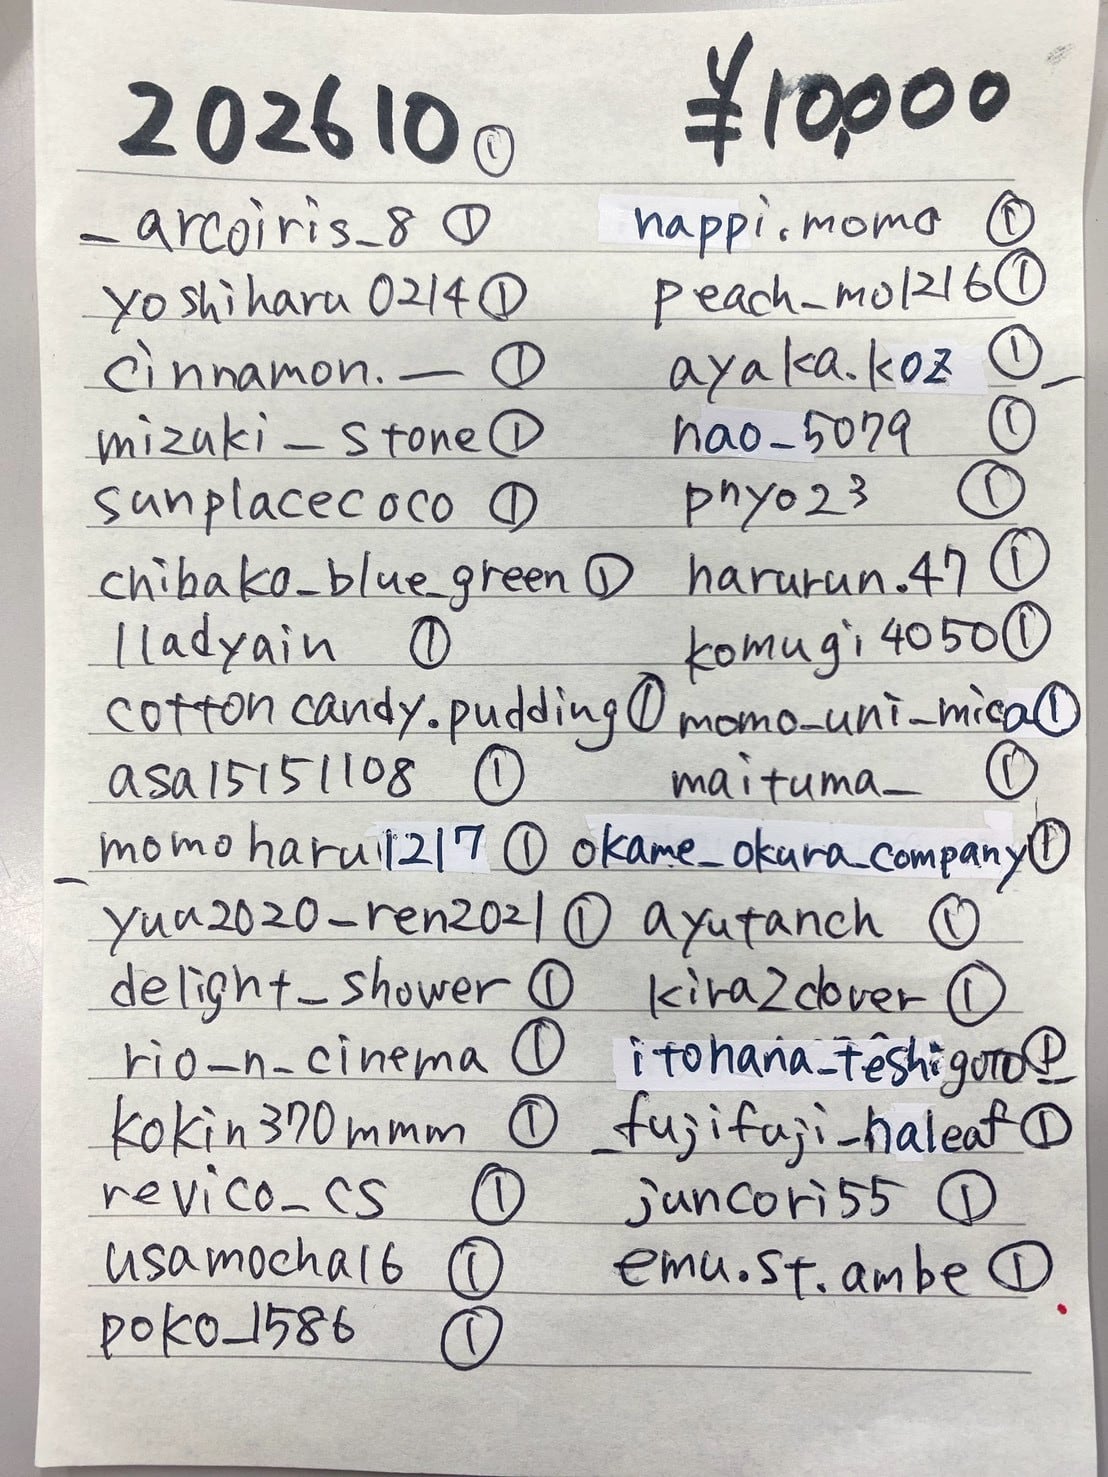 202610 ① ¥10,000
_arcoiris_8 ①
yoshiharu0214 ①
cinnamon._ ①
mizuki_stone ①
sunplacecoco ①
chibako_blue_green ①
lladyain ①
cottoncandy.pudding ①
asa15151108 ①
momoharu1217 ①
_yuu2020_ren2021 ①
delight_shower ①
rio_n_cinema ①
kokin370mmm ①
revico_cs ①
usamocha16 ①
poko_1586 ①
nappi.momo ①
peach_mo1216 ①
ayaka.koz_ ①
nao_5079 ①
pnyo23 ①
harurun.47 ①
komugi4050 ①
momo_uni_mica ①
maituma_ ①
okame_okura_company ①
ayutanch ①
kira2clover ①
itohana_teshigoto_ ①
_fujifuji_haleaf ①
juncori55 ①
emu.st.ambe ①